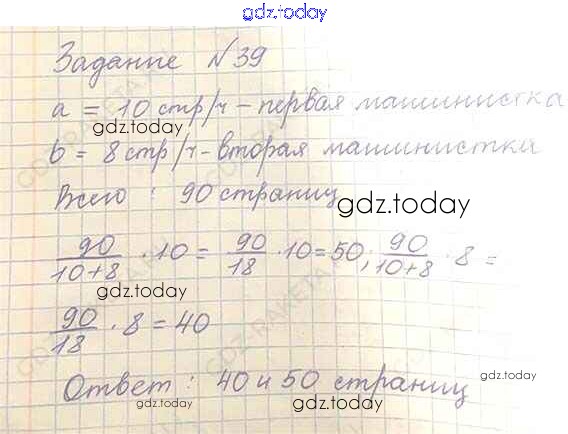 gdz.today
Задание №39
a = 10 стр/ч – первая машинистка
gdz.today
b = 8 стр/ч – вторая машинистка
Всего : 90 страниц
gdz.today
90/10+8 · 10 = 90/18 · 10 = 50; 90/10+8 · 8 =
gdz.today
90/18 · 8 = 40
Ответ : 40 и 50 страниц
gdz.today gdz.today gdz.today